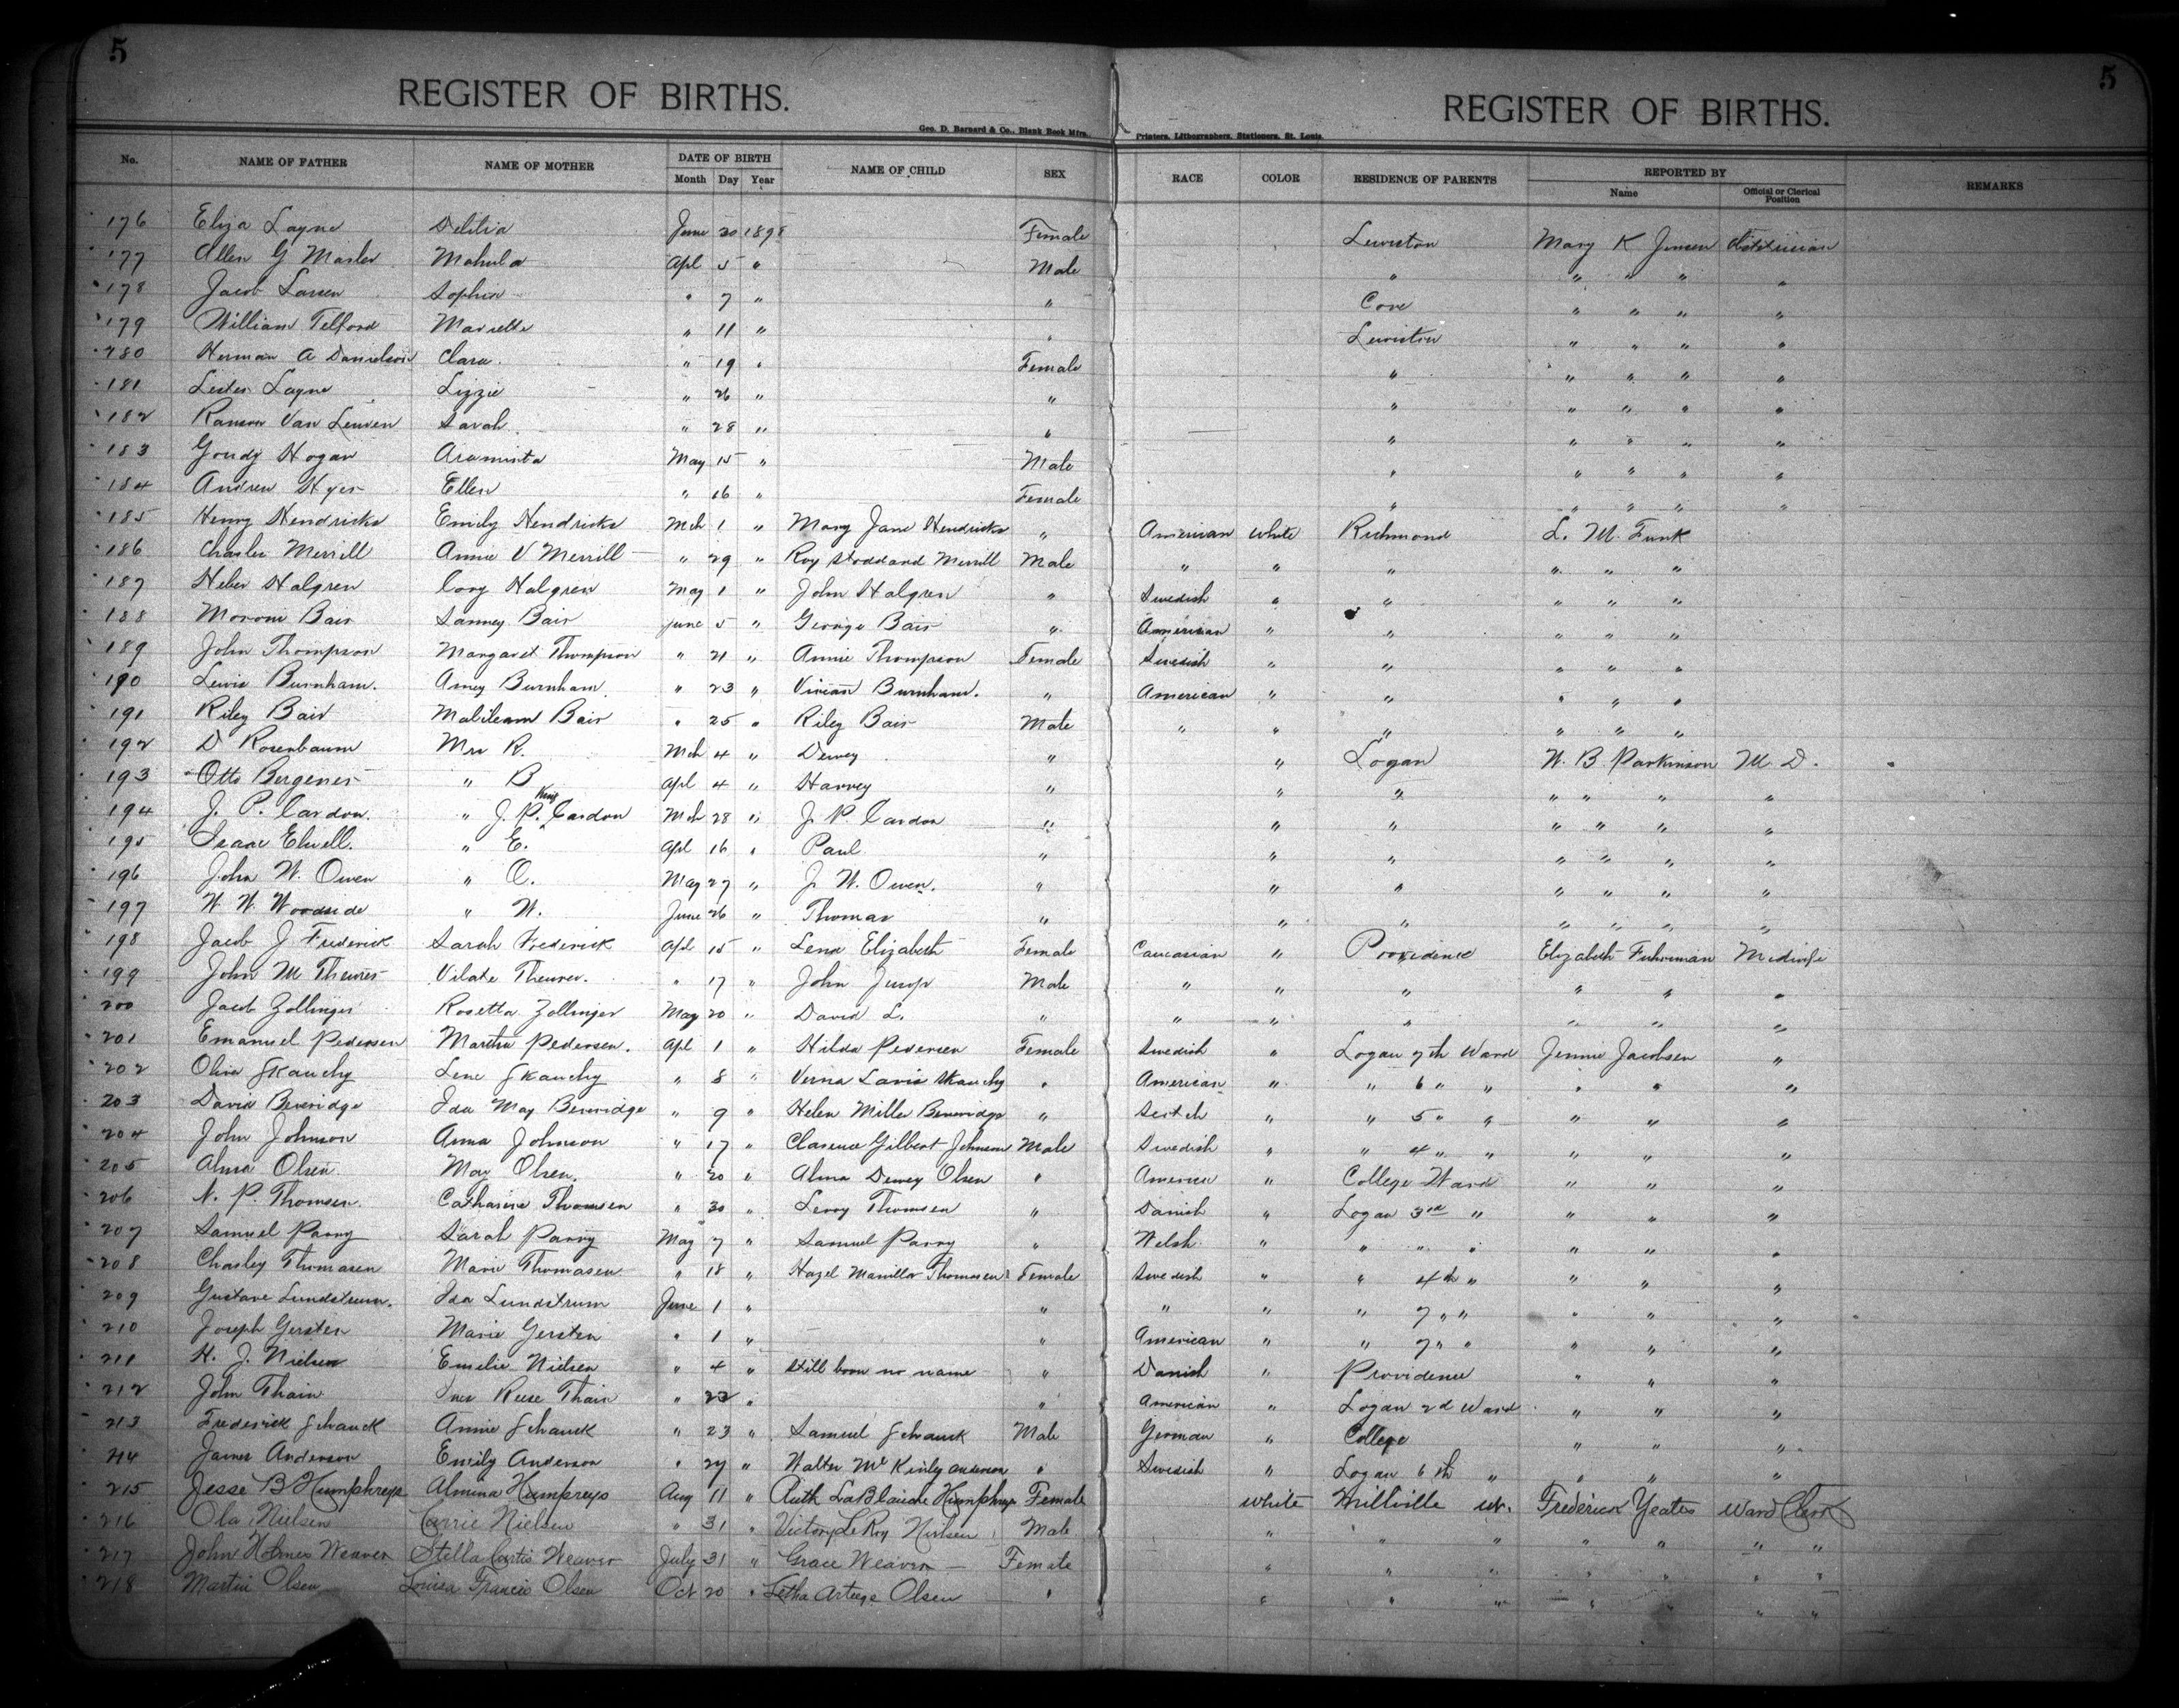 5
5
REGISTER OF BIRTHS.
REGISTER OF BIRTHS.
Geo. D. Barnard & Co., Blank Book Mfrs., Printers, Lithographers, Stationers, St. Louis.
No. NAME OF FATHER NAME OF MOTHER DATE OF BIRTH NAME OF CHILD SEX RACE COLOR RESIDENCE OF PARENTS REPORTED BY REMARKS
Month Day Year Name Official or Clerical Position
176 Eliza Layne June 20 1898 Female Lewiston Mary K Jensen
177 Allen G Marler Mahula Apl 5 " Male " " " " "
178 Jacob Larsen Sophia " 7 " " Cove " " " "
179 William Telford Mariette " 11 " " Lewiston " " " "
180 Herman A Danielson Clara. " 19 " Female " " " " "
181 Lester Layne Lizzie " 26 " " " " " " "
182 Ransom Van Leuven Sarah. " 28 " " " " " " "
183 Goudy Hogan Araminta May 15 " Male " " " " "
184 Andrew Hyer Ellen " 16 " Female " " " " "
185 Henry Hendricks Emily Hendricks Mch 1 " Mary Jane Hendricks " American White Richmond L. M. Funk
186 Charles Merrill Annie V Merrill " 29 " Roy Stoddard Merrill Male " " " " " "
187 Heber Halgren Cory Halgren May 1 " John Halgren " Swedish " " " " "
188 Moroni Bair Bair June 5 " George Bair " American " " " " "
189 John Thompson Margaret Thompson " 21 " Annie Thompson Female Swedish " " " " "
190 Lewis Burnham. Amey Burnham. " 23 " Vivian Burnham. " American " " " " "
191 Riley Bair Bair " 25 " Riley Bair Male " " " " " "
192 D Rosenbaum Mrs R. Mch 4 " Dewey " " Logan W. B Parkinson M. D.
193 Otto Bergener " B Apl 4 " Harvey " " " " " " "
194 J. P. Cardon. " J. P. King Cardon Mch 28 " J. P. Cardon " " " " " " "
195 Isaac Elwell. " E. Apl 16 " Paul " " " " " " "
196 John W. Owen " O. May 27 " J. W. Owen. " " " " " " "
197 W. W. Woodside " W. June 26 " Thomas " " " " " " "
198 Jacob J Frederick Sarah Frederick Apl 15 " Lena Elizabeth Female Caucasian " Providence Elizabeth Fuhriman Midwife
199 John M Theurer Vilate Theurer. " 17 " John Male " " " " " "
200 Jacob Zollinger Rosetta Zollinger May 20 " David L. " " " " " " "
201 Emanuel Pedersen Martha Pedersen. Apl 1 " Hilda Pedersen Female Swedish " Logan 7th Ward Jennie Jacobsen "
202 Skanchy Lene Skanchy " 8 " Verna Skanchy " American " " 6 " " " " "
203 David Beveridge Ida May Beveridge " 9 " Helen Miller Beveridge " Scotch " " 5 " " " " "
204 John Johnson Anna Johnson " 17 " Clarence Gilbert Johnson Male Swedish " " 4 " " " " "
205 Alma Olsen. May Olsen. " 20 " Alma Dewey Olsen " America " College Ward " " "
206 N. P. Thomsen. Catharine Thomsen " 30 " Leroy Thomsen " Danish " Logan 3rd " " " "
207 Samuel Parry Sarah Parry May 7 " Samuel Parry " Welsh. " " " " " " "
208 Charley Thomasen Marie Thomasen " 18 " Hazel Manilla Thomasen Female Swedish " " 4th " " " "
209 Gustave Lundstrum. Ida Lundstrum June 1 " " " " " 7 " " " " "
210 Joseph Gersten Marie Gersten " 1 " " American " " 7 " " " " "
211 H. J. Nielsen Emelie Nielsen " 4 " Still born no name " Danish " Providence " " "
212 John Thain Reese Thain " 22 " " American " Logan 2d Ward " " "
213 Frederick Schauck Annie Schauck " 23 " Samuel Schauck Male German " College " " "
214 James Anderson Emily Anderson " 27 " Walter McKinly Anderson " Swedish " Logan 6th " " " "
215 Jesse B Humphreys Almina Humpreys Aug 11 " Ruth LaBlanche Humphreys Female White Millville Ut. Frederick Yeates Ward Clerk
216 Ola Nielsen Carrie Nielsen " 31 " Victory LeRoy Nielsen Male " " " " " " "
217 John Holmes Weaver Stella Curtis Weaver July 31 " Grace Weaver Female " " " " " " "
218 Martin Olsen Louisa Francis Olsen Oct 20 " Olsen " " " " " " " "